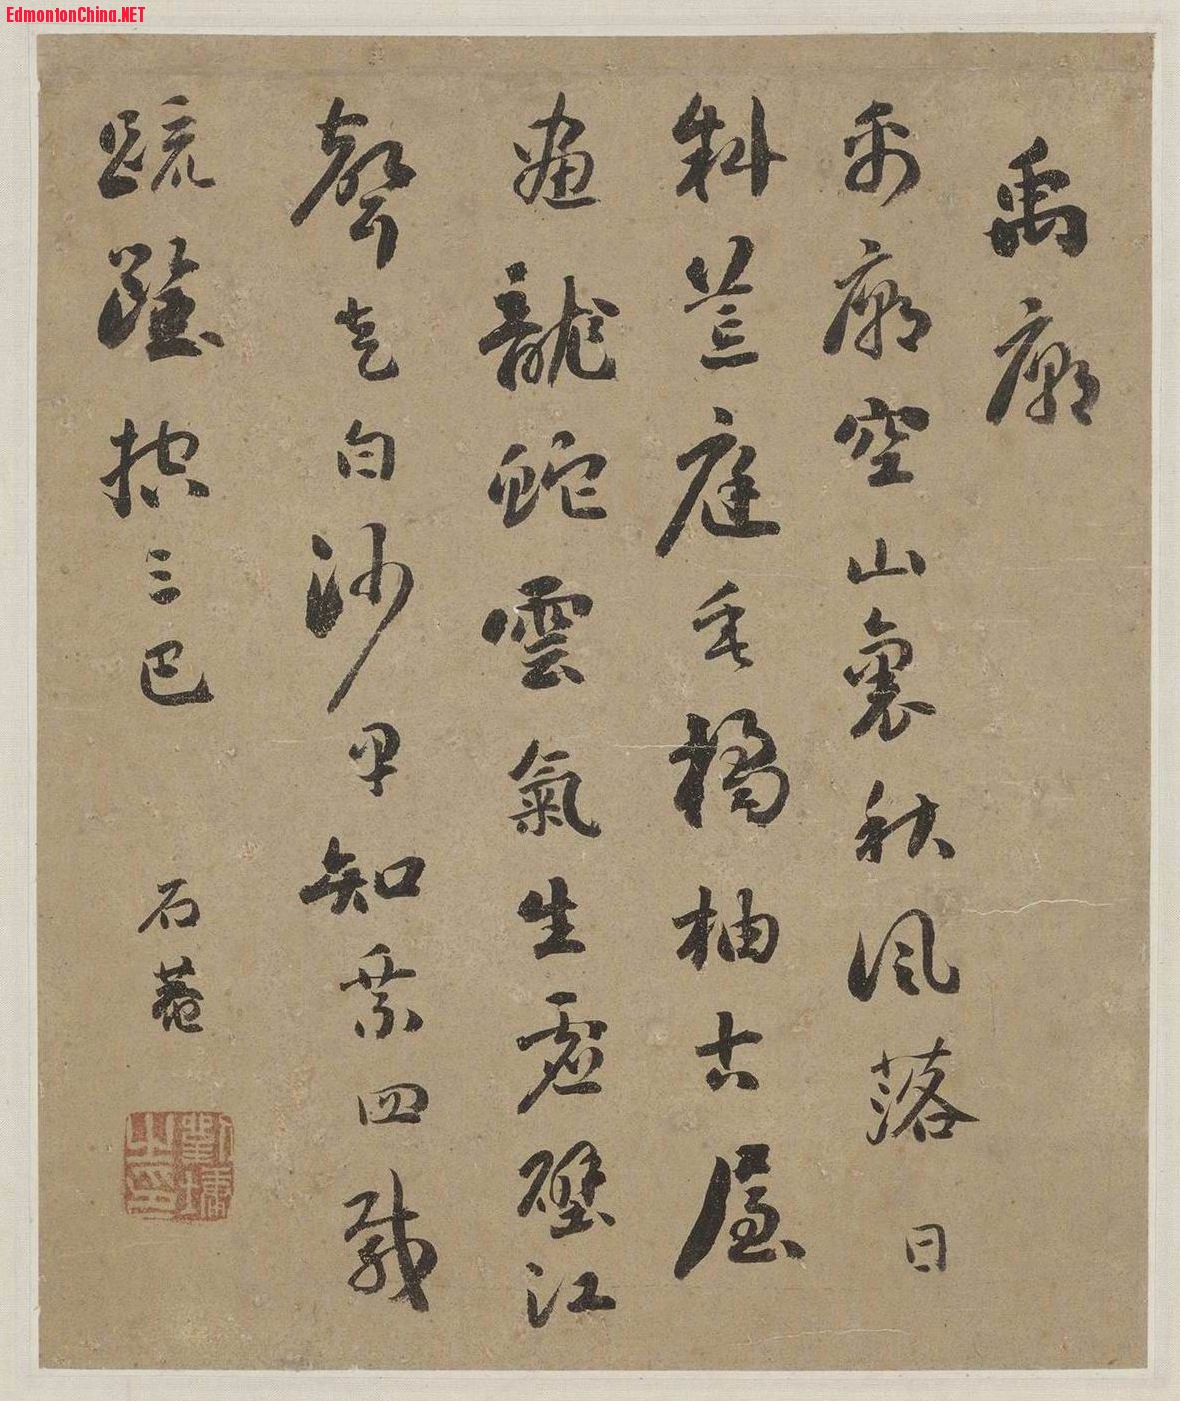 EdmontonChina.NET
禹廟
禹廟空山裏秋風落日
斜荒庭垂橘柚古屋
畫龍蛇雲氣生虛壁江
聲走白沙早知乘四載
疏鑿控三巴 石菴
劉墉之印